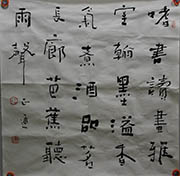 嗜書讀畫雅
室翰墨溢香
氣煮酒品茗
長廊芭蕉聽
雨聲